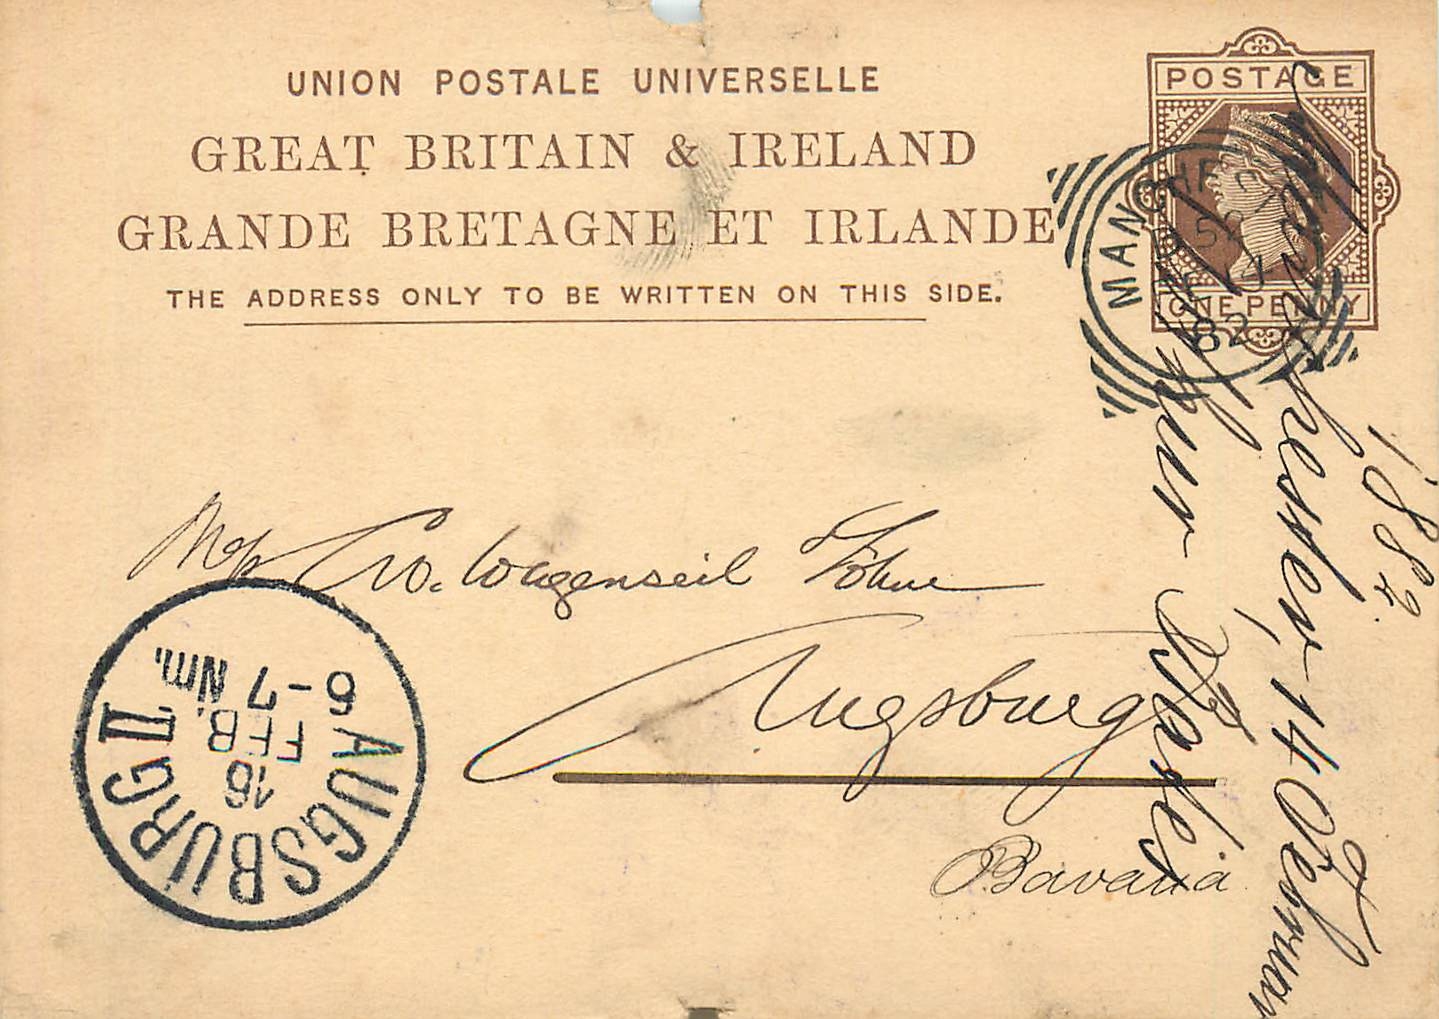 UNION POSTALE UNIVERSELLE
POSTAGE
GREAT BRITAIN & IRELAND
GRANDE BRETAGNE ET IRLANDE
THE ADDRESS ONLY TO BE WRITTEN ON THIS SIDE.
ONE PENNY
MANCHE
82
Wagenseil Söhne
Augsburg
Bavaria
AUGSBURG II
16
FEB.
6-7 Nm.
1882.
Manchester, 14 Februar
Arthur